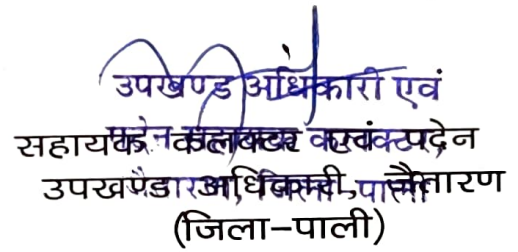 उपखण्ड अधिकारी एवं
सहायक कलक्टर एवं पदेन
उपखण्ड अधिकारी, जैतारण
(जिला-पाली)